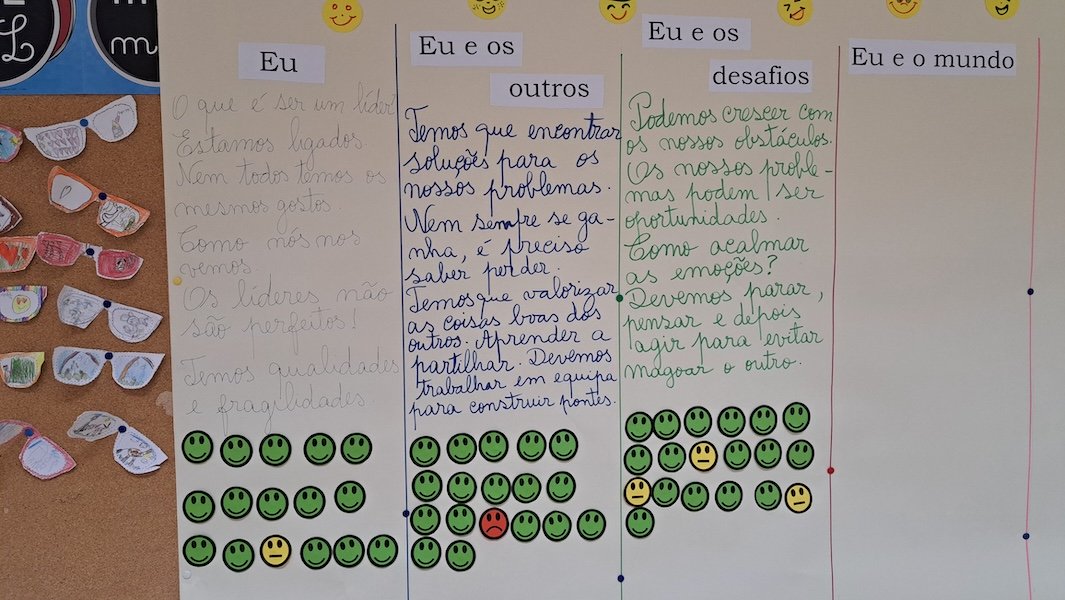 L
m
Eu
O que é ser um líder?
Estamos ligados.
Nem todos temos os
mesmos gostos.
Como nós nos
vemos.
Os líderes não
são perfeitos!
Temos qualidades
e fragilidades.
Eu e os
outros
Temos que encontrar
soluções para os
nossos problemas.
Nem sempre se ga-
nha, é preciso
saber perder.
Temos que valorizar
as coisas boas dos
outros. Aprender a
partilhar. Devemos
trabalhar em equipa
para construir pontes.
Eu e os
desafios
Podemos crescer com
os nossos obstáculos.
Os nossos proble-
mas podem ser
oportunidades.
Como acalmar
as emoções?
Devemos parar,
pensar e depois
agir para evitar
magoar o outro.
Eu e o mundo